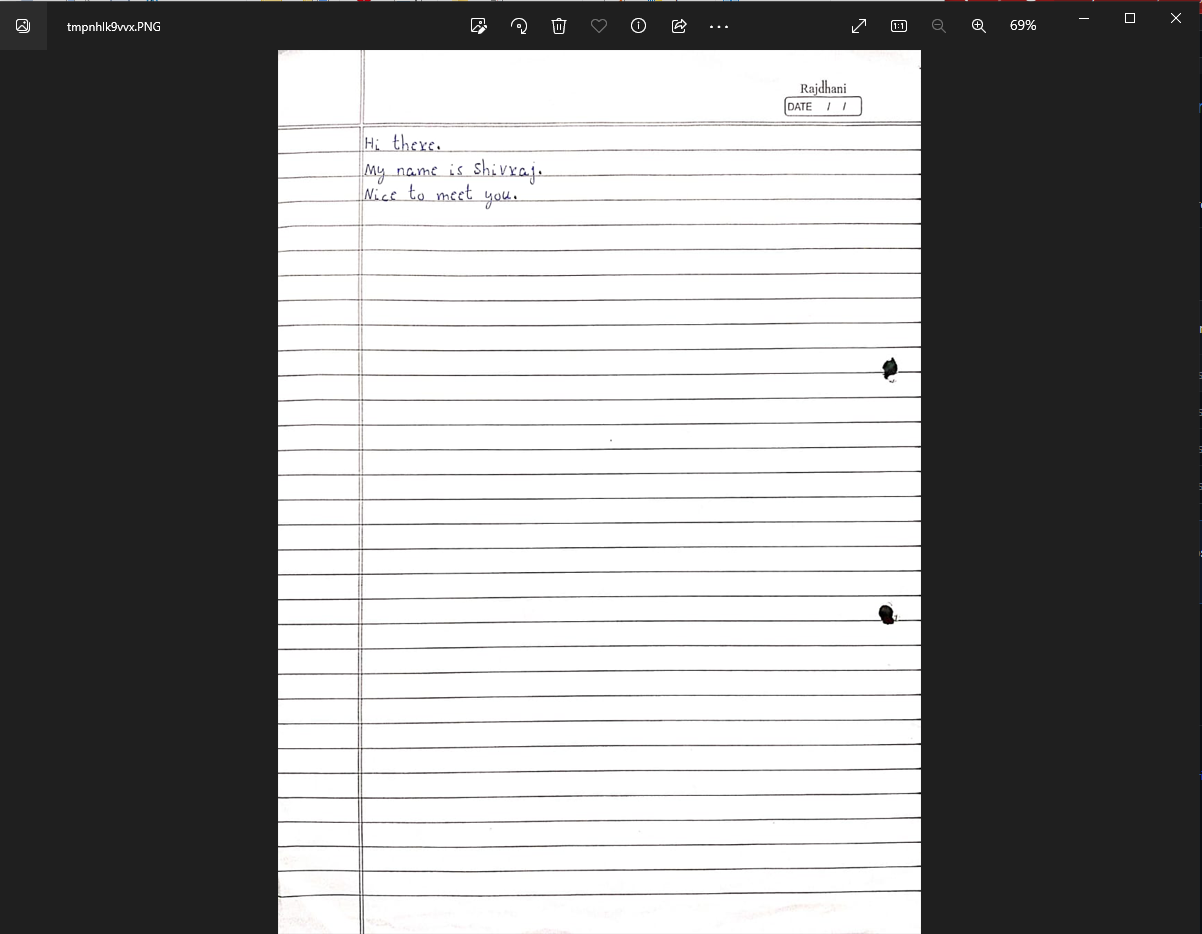 tmpnhlk9vvx.PNG
1:1
69%
Rajdhani
DATE / /
Hi there.
My name is Shivraj.
Nice to meet you.